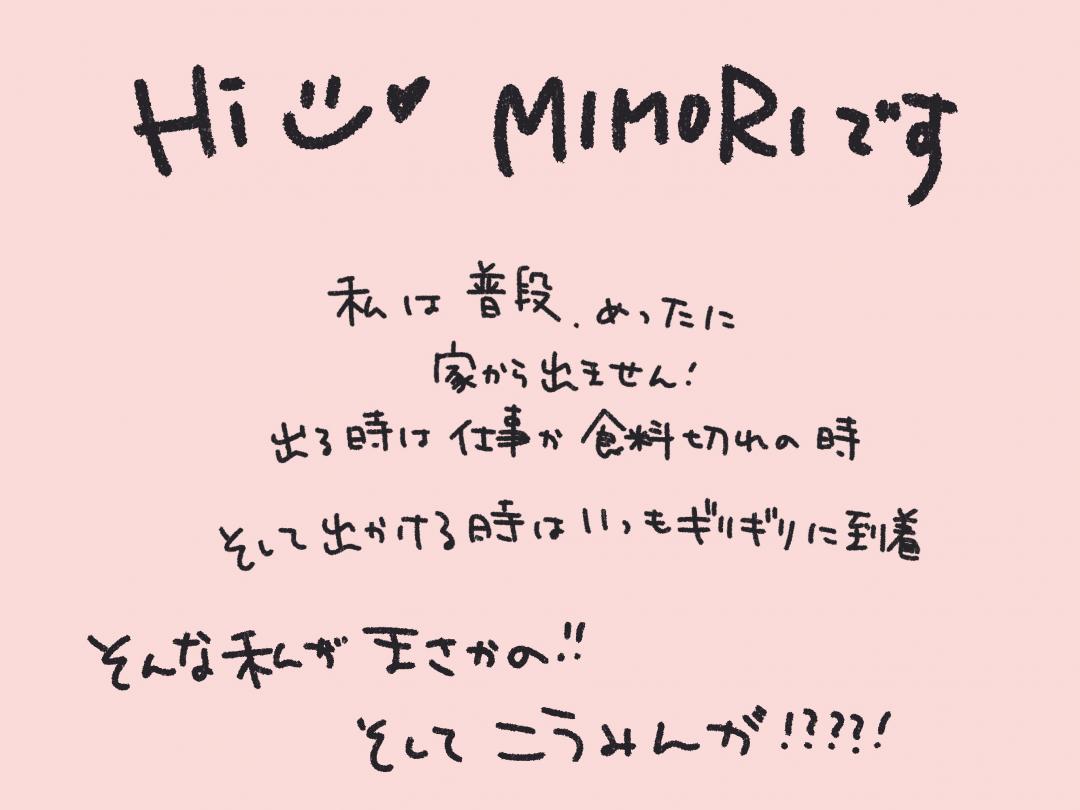 Hi ♥ MIMORIです
私は普段、めったに
家から出ません!
出る時は仕事か食料切れの時
そして出かける時はいつもギリギリに到着
そんな私がまさかの!!
そしてこうみんが!????!